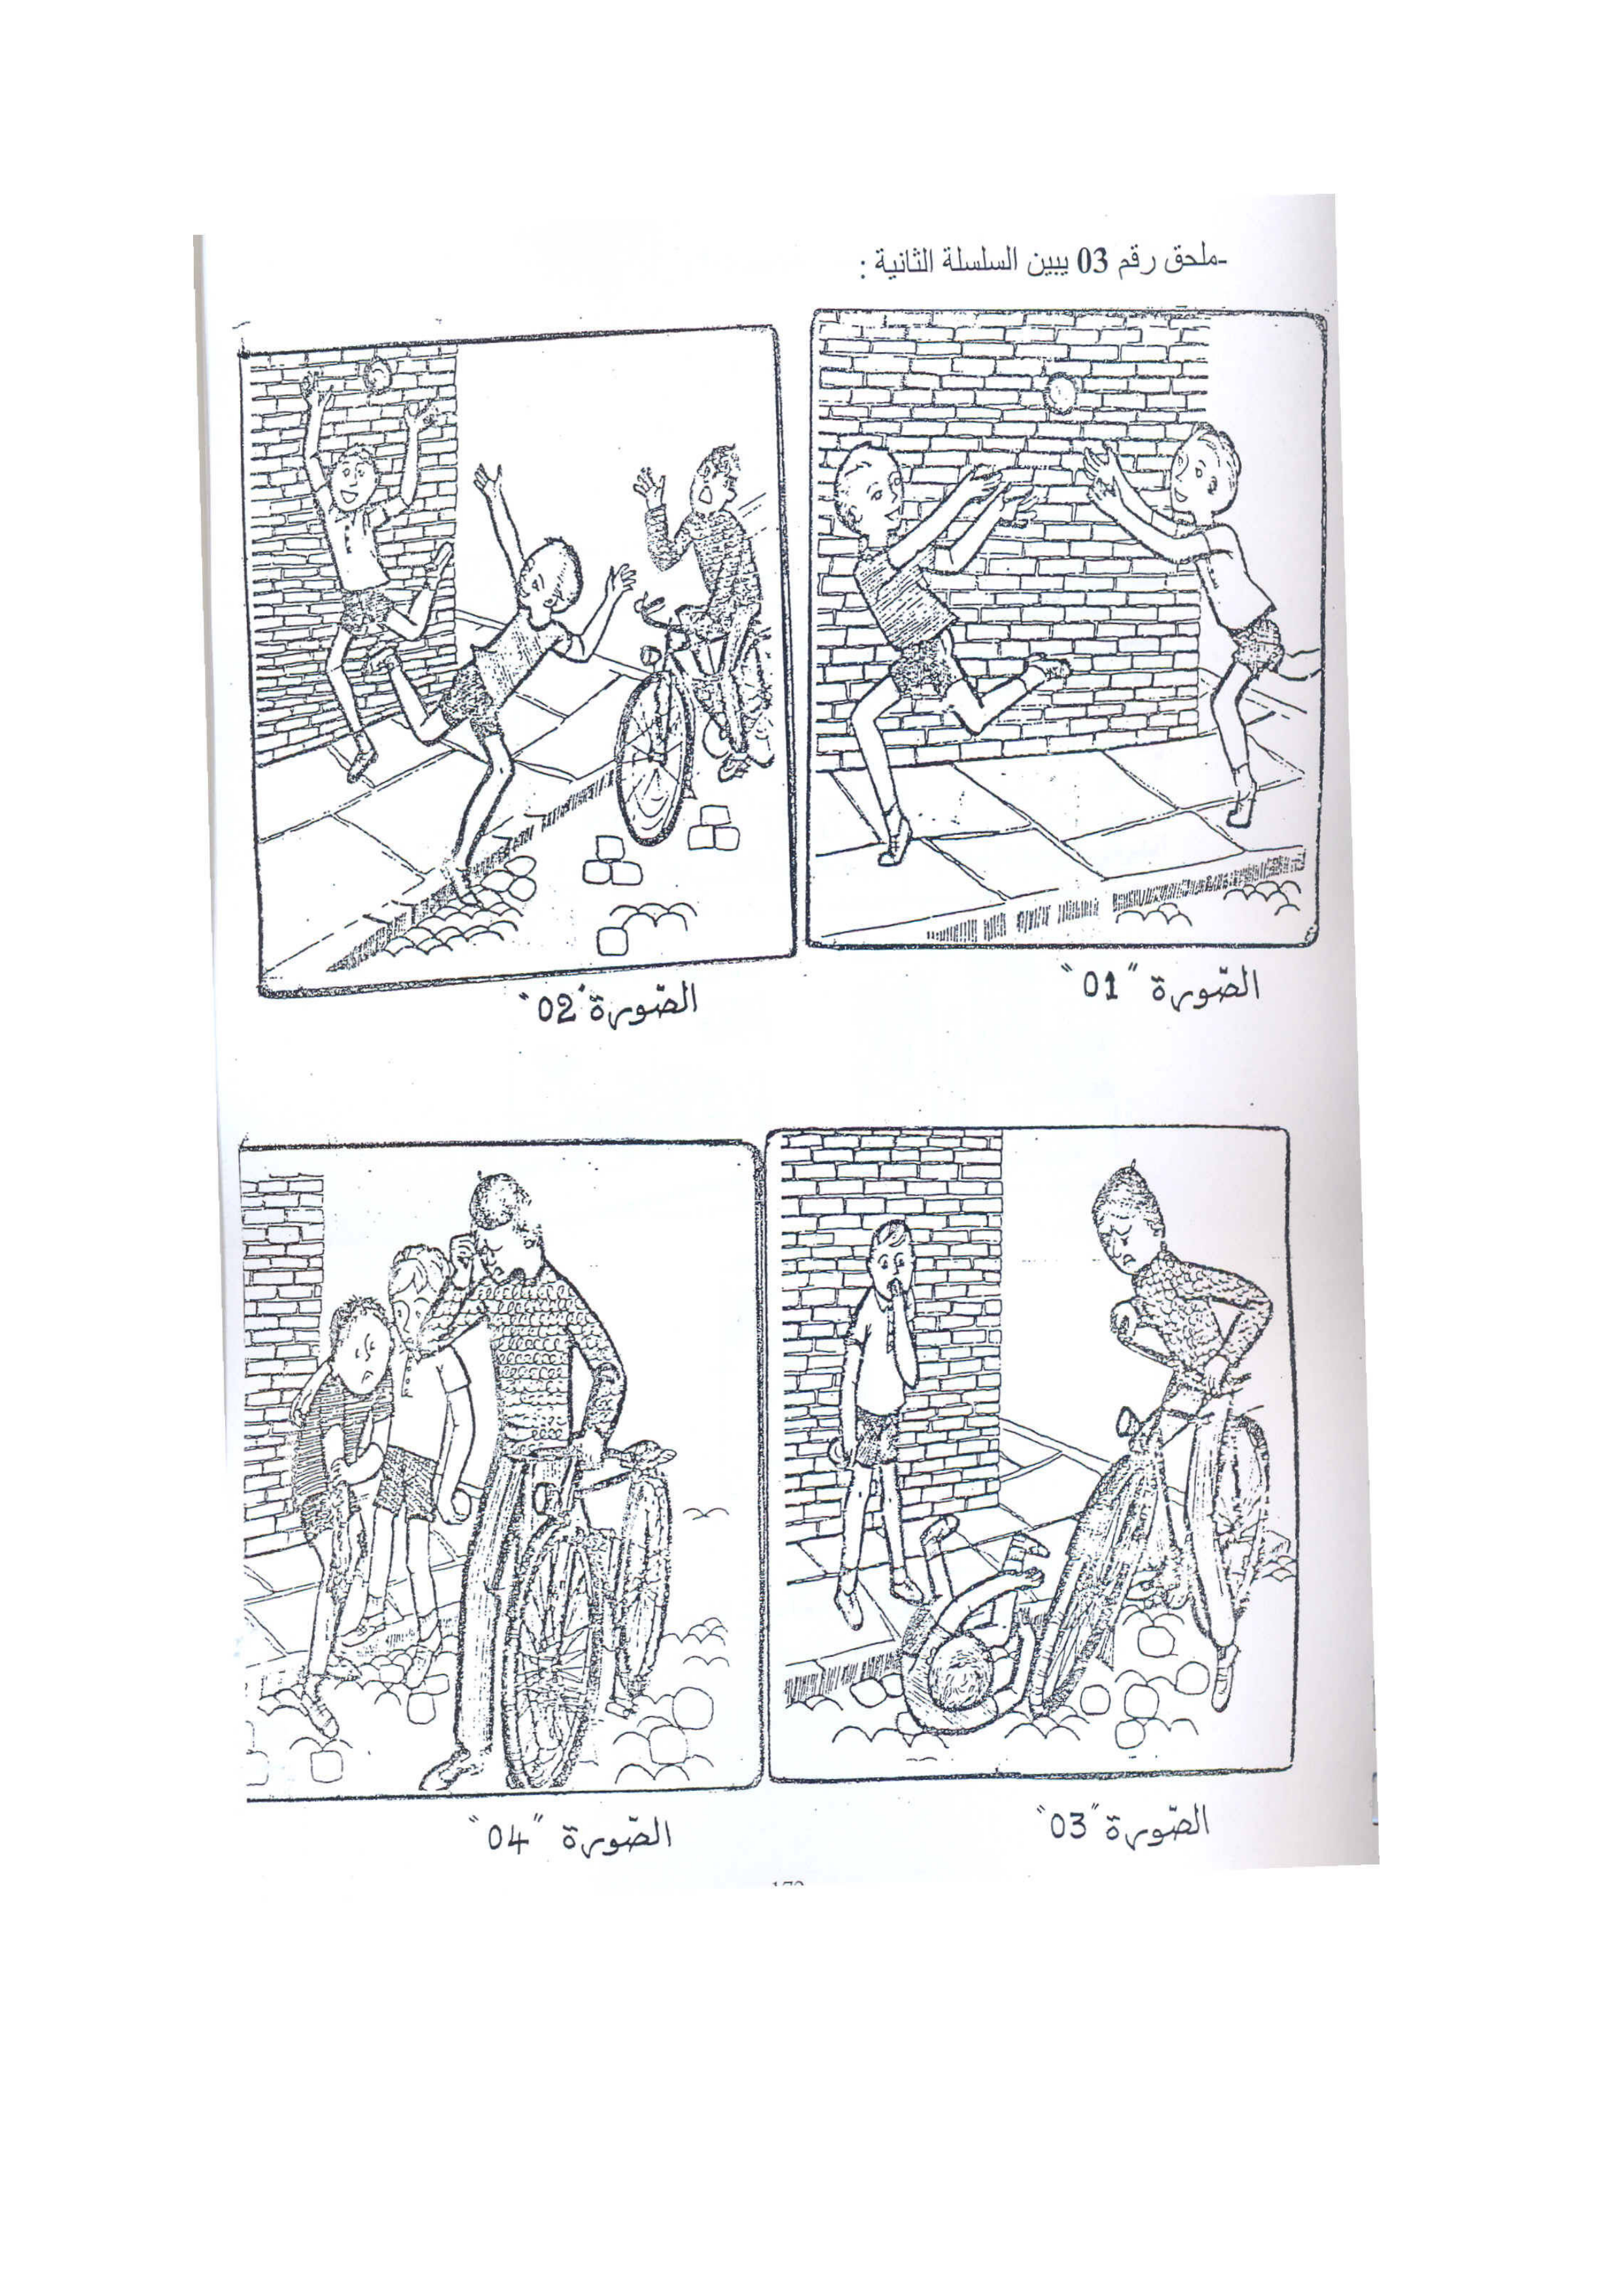 -ملحق رقم 03 يبين السلسلة الثانية :
الصّورة "01"
الصّورة "02"
الصّورة "03"
الصّورة "04"